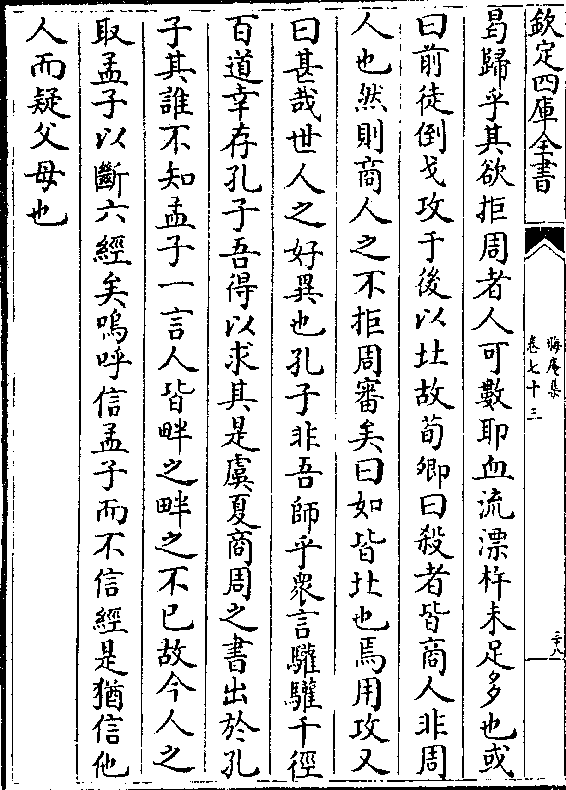 欽定四庫全書
晦庵集
卷七十三
三十八
曷歸乎其欲拒周者人可數耶血流漂杵未足多也或
曰前徒倒戈攻于後以北故荀卿曰殺者皆商人非周
人也然則商人之不拒周審矣曰如皆北也焉用攻又
曰甚哉世人之好異也孔子非吾師乎衆言驩驩千徑
百道幸存孔子吾得以求其是虞夏商周之書出於孔
子其誰不知孟子一言人皆畔之畔之不已故今人之
取孟子以斷六經矣嗚呼信孟子而不信經是猶信他
人而疑父母也